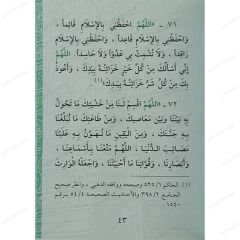 ٧١ - «اللَّهُمَّ احْفَظْنِي بِالإِسْلَامِ قَائِماً،
وَاحْفَظْنِي بِالإِسْلَامِ قَاعِداً، وَاحْفَظْنِي بِالإِسْلَامِ
رَاقِداً، وَلَا تُشْمِتْ بِي عَدُوّاً وَلَا حَاسِداً. اللَّهُمَّ
إِنِّي أَسْأَلُكَ مِنْ كُلِّ خَيْرٍ خَزَائِنُهُ بِيَدِكَ، وَأَعُوذُ
بِكَ مِنْ كُلِّ شَرٍّ خَزَائِنُهُ بِيَدِكَ»(١).
٧٢ - «اللَّهُمَّ اقْسِمْ لَنَا مِنْ خَشْيَتِكَ مَا تَحُولُ
بِهِ بَيْنَنَا وَبَيْنَ مَعَاصِيكَ، وَمِنْ طَاعَتِكَ مَا تُبَلِّغُنَا
بِهِ جَنَّتَكَ، وَمِنَ الْيَقِينِ مَا تُهَوِّنُ بِهِ عَلَيْنَا
مَصَائِبَ الدُّنْيَا، اللَّهُمَّ مَتِّعْنَا بِأَسْمَاعِنَا،
وَأَبْصَارِنَا، وَقُوَّاتِنَا مَا أَحْيَيْتَنَا، وَاجْعَلْهُ الْوَارِثَ
(١) الحاكم ١/ ٥٢٥ وصححه ووافقه الذهبي، وانظر صحيح
الجامع ٢/ ٣٩٨ والأحاديث الصحيحة ٤/ ٥٤ برقم
١٥٤٠.
٤٣